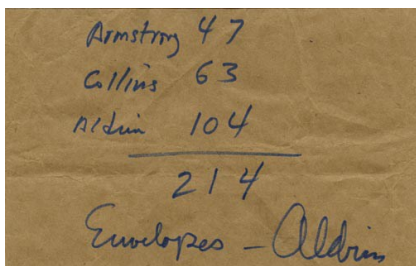 Armstrong 47
Collins 63
Aldrin 104
214
Envelopes - Aldrin